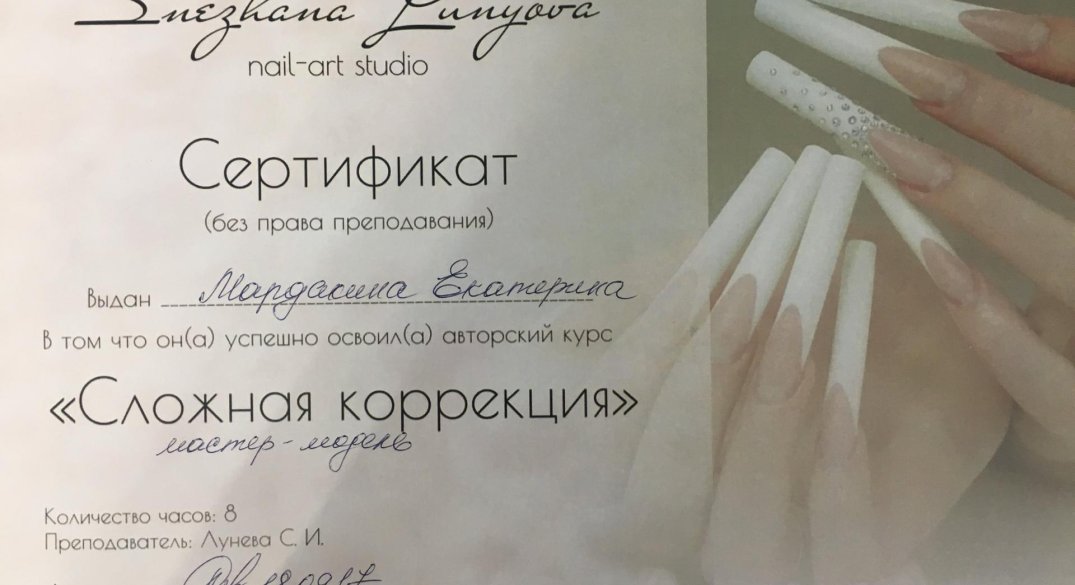 Snezhana Lunyova
nail-art studio
Сертификат
(без права преподавания)
Выдан Мардасина Екатерина
В том что он(а) успешно освоил(а) авторский курс
«Сложная коррекция»
мастер-модель
Количество часов: 8
Преподаватель: Лунева С. И.